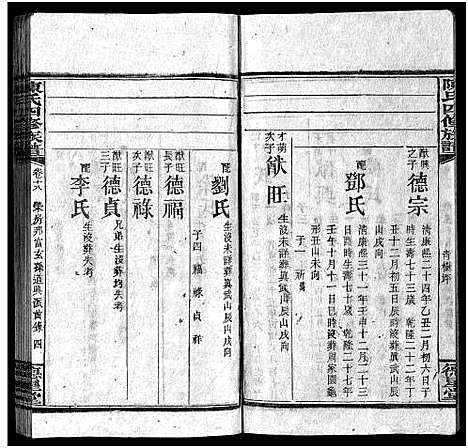 陳氏四修族譜
猷興之子
德宗
清康熙二十四年乙丑二月初六日子
時生壽七十三歲 乾隆二十二年丁
丑十二月初五日辰時歿葬真武山辰
山戌向
配
鄧氏
清康熙三十一年壬申十月二十八
日酉時生壽七十一歲 乾隆二十七年
壬午十月十一日
形丑山未向
子一
才萌次子
猷旺
生沒未詳葬真武山辰山戌向
配
劉氏
生沒未詳葬真武山辰山戌向
子四 福 祿 貞 祥
猷旺長子
德福
猷旺次子
德祿
猷旺三子
德貞
兄弟生沒葬均失考
配
李氏
生沒葬失考
陳氏四修族譜
卷十六
榮房邦富玄孫道興派首錄 四
德星堂